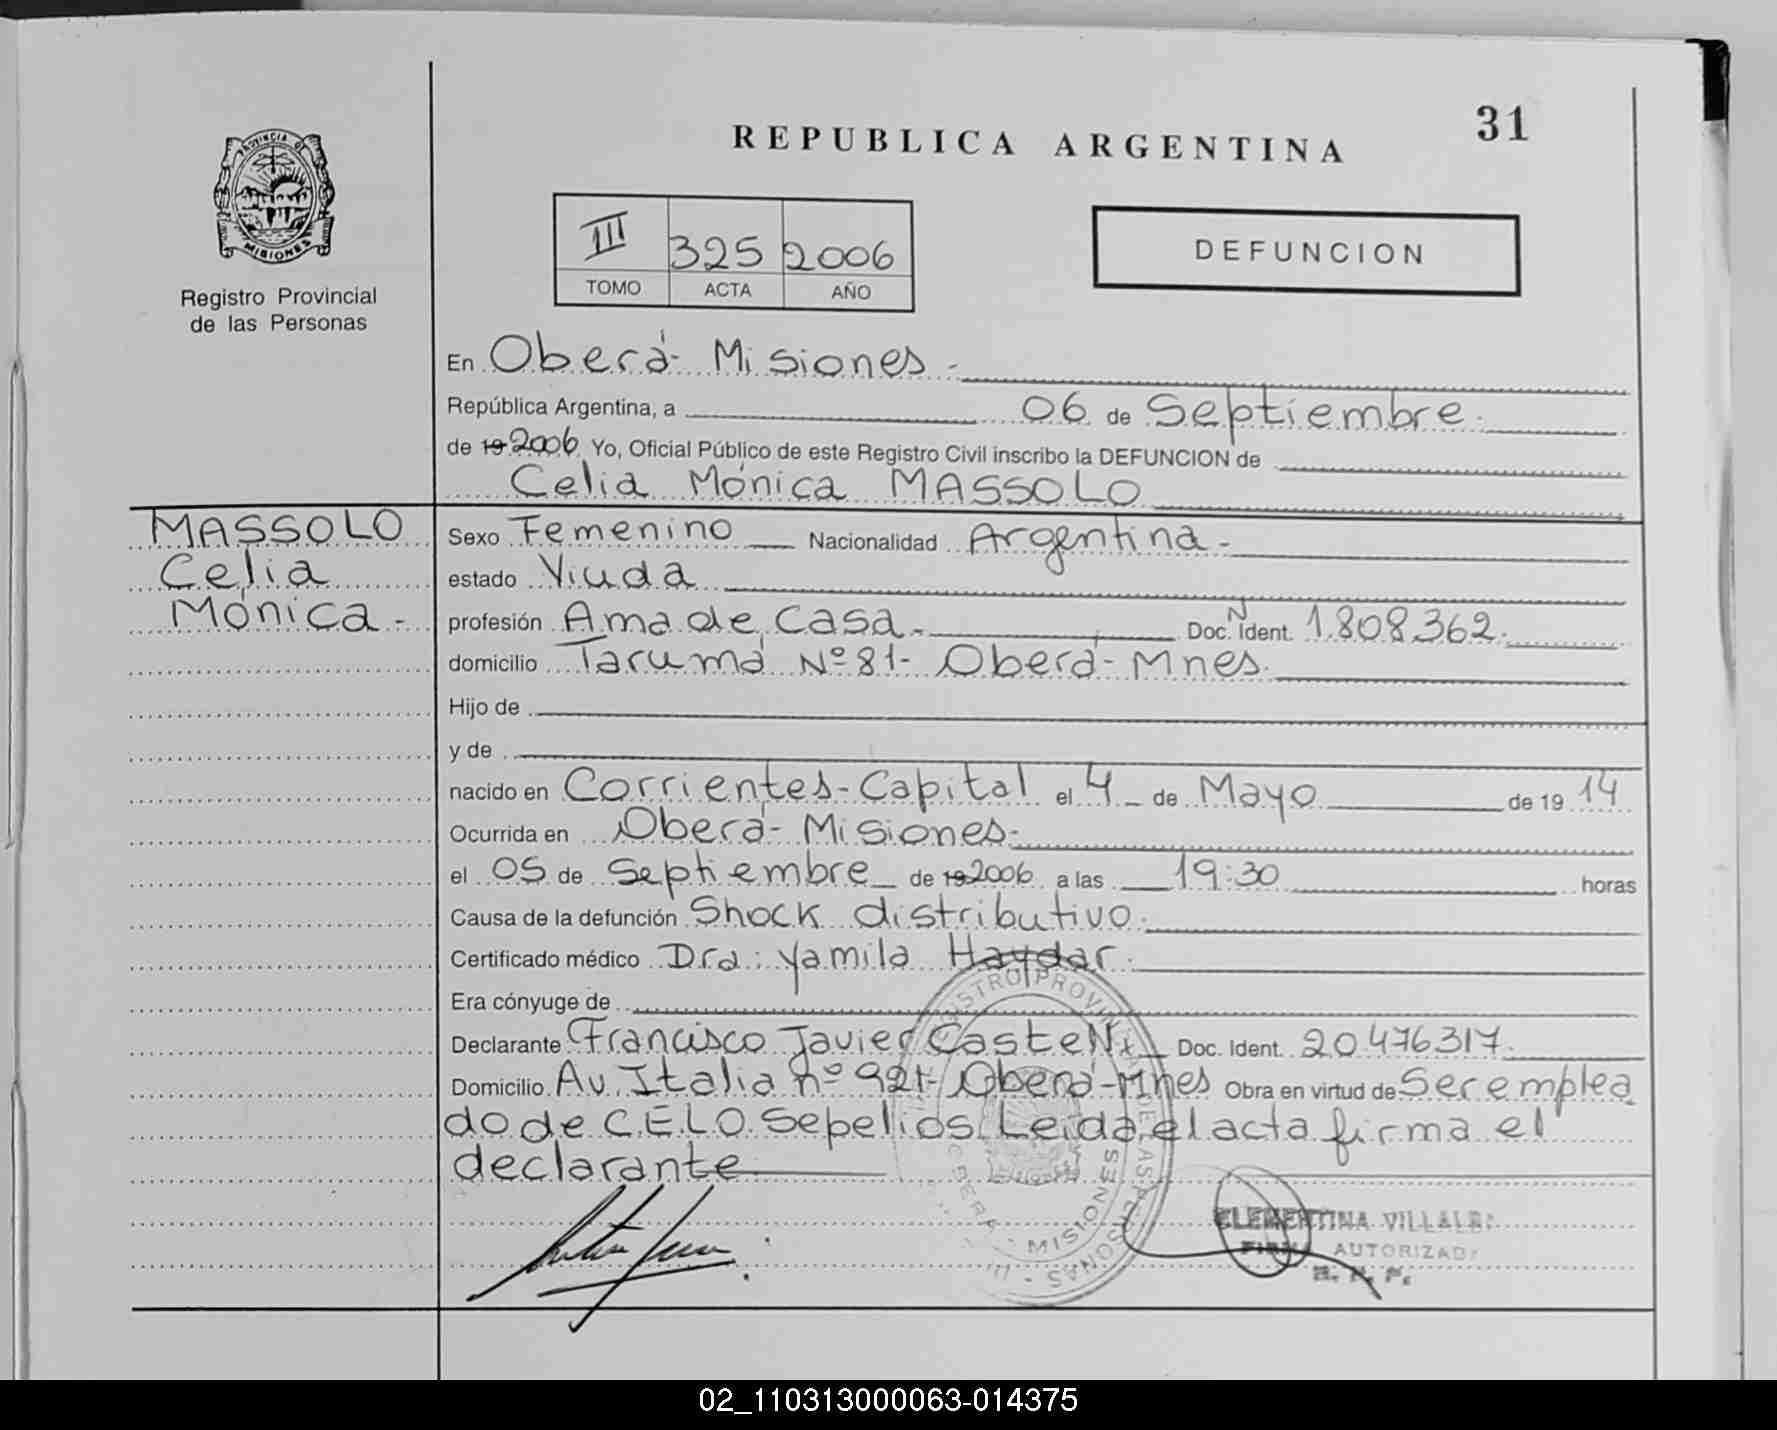 31
REPUBLICA ARGENTINA
PROVINCIA DE
MISIONES
Registro Provincial
de las Personas
III 325 2006
TOMO ACTA AÑO
DEFUNCION
En Oberá- Misiones-
República Argentina, a 06 de Septiembre.
de 19 2006 Yo, Oficial Público de este Registro Civil inscribo la DEFUNCION de
Celia Mónica MASSOLO
MASSOLO
Celia
Mónica-
Sexo Femenino Nacionalidad Argentina-
estado Viuda
profesión Ama de Casa- Doc. N Ident. 1.808.362.
domicilio Tarumá Nº 81- Oberá- Mnes.
Hijo de
y de
nacido en Corrientes-Capital el 4 de Mayo de 19 14
Ocurrida en Oberá- Misiones-
el 05 de Septiembre de 19 2006 a las 19:30 horas
Causa de la defunción Shock distributivo.
Certificado médico Dra: Yamila Haydar.
Era cónyuge de
Declarante Francisco Javier Castelli Doc. Ident. 20.476317.
Domicilio Av. Italia nº 921- Oberá-Mnes Obra en virtud de Ser emplea
do de C.E.L.O. Sepelios. Leida el acta firma el
declarante
MISIONES
CLEMENTINA VILLALBA
FIRMA AUTORIZADA
R. P. P.
02_110313000063-014375